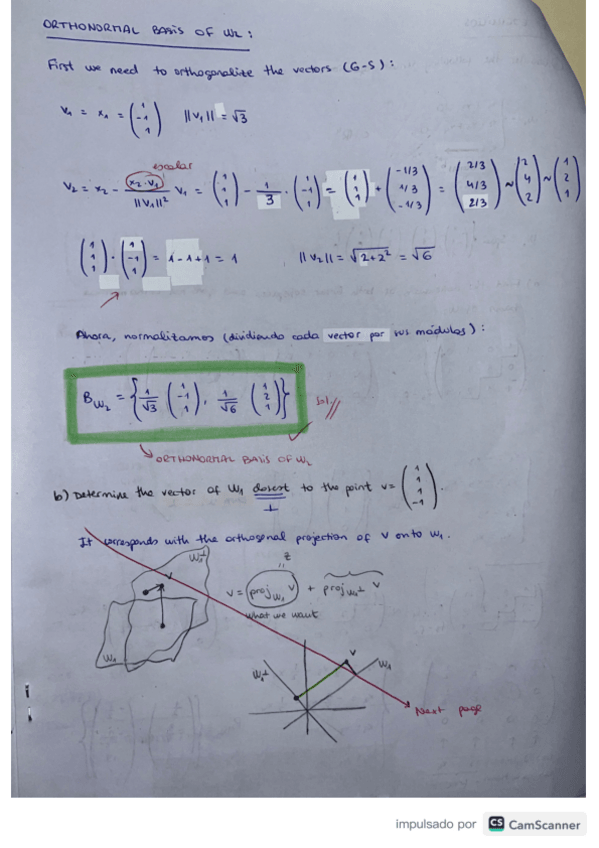 ORTHONORMAL BASIS OF W₂ :
First we need to orthogonalize the vectors (G-S) :
v₁ = x₁ = (1 -1 1) ||v₁|| = √3
escalar
v₂ = x₂ - (x₂·v₁)/||v₁||² v₁ = (1 1 1) - 1/3 · (1 -1 1) = (1 1 1) + (-1/3 1/3 -1/3) = (2/3 4/3 2/3) ~ (2 4 2) ~ (1 2 1)
(1 1 1) · (1 -1 1) = 1-1+1 = 1 ||v₂|| = √2+2² = √6
Ahora, normalitzamos (dividiendo cada vector por sus módulos) :
B_W₂ = { 1/√3 (1 -1 1), 1/√6 (1 2 1) } b1.//
ORTHONORMAL BASIS OF W₂
b) Determine the vector of W₁ closest to the point v = (1 1 1 -1).
⊥
It corresponds with the orthogonal projection of v onto W₁.
W₁⊥
v
z
v = proj_W₁ v + proj_W₁⊥ v
what we want
W₁
W₁⊥
v
W₁
Next page
impulsado por CS CamScanner